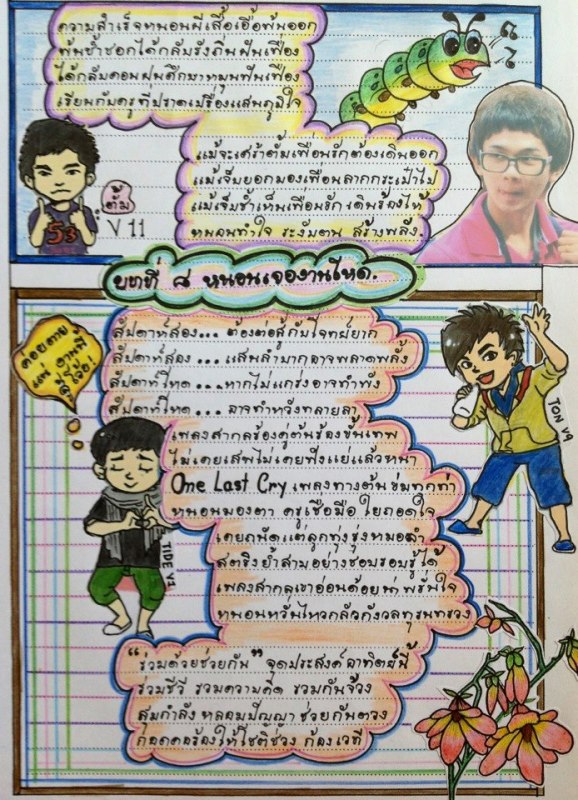 ความสำเร็จหนอนผีเสื้อเอื้อพ้นออก
พ้นช้ำชอกได้กลับรังถิ่นฝันเฟื่อง
ได้กลับคอนฝนศึกมาหมุนฟันเฟือง
เรียนกับครูที่ปราดเปรื่องแสนภูมิใจ
แม้จะเศร้าตั้มเพื่อนรักต้องเดินออก
แม้เจ็บยอกมองเพื่อนลากกระเป๋าไป
แม้เจ็บช้ำเห็นเพื่อนรักเดินร้องไห้
หนอนทำใจ ระงับดาน สร้างพลัง
ตั้ม
V 11
53
บทที่ ๘ หนอนเจองานโหด.
สัปดาห์สอง... ต้องต่อสู้กับโจทย์ยาก
สัปดาห์สอง ... แสนลำบากอาจพลาดพลั้ง
สัปดาห์โหด ...หากไม่แกร่งอาจทำพัง
สัปดาห์โหด ... อาจทำหวังทลายลา
ต่อยตาย
แต่
TON V9
เพลงสากลร้องคู่ต้นร้องขั้นเทพ
ไม่เคยเสพไม่เคยฟังแย่แล้วหนา
One Last Cry เพลงทางต้นข่มทุกท่า
หนอนมองตา ครูเชื่อมือ ใยถอดใจ
เคยถนัดแต่ลูกทุ่งรุ่งหมอลำ
สตริงย้ำสามอย่างชอบรอบรู้ได้
เพลงสากลเขาอ่อนด้อยน่าพรั่นใจ
หนอนหวั่นไหวกลัวกังวลทุรนทรวง
TIDE V7
"ร่วมด้วยช่วยกัน" จุดประสงค์อาทิตย์นี้
ร่วมชีวี รวมความคิด รวมกันจ้วง
สุมกำลัง หลอมปัญญา ช่วยกันตวง
ถอดดลร้องให้โชติช่วง ก้องเวที